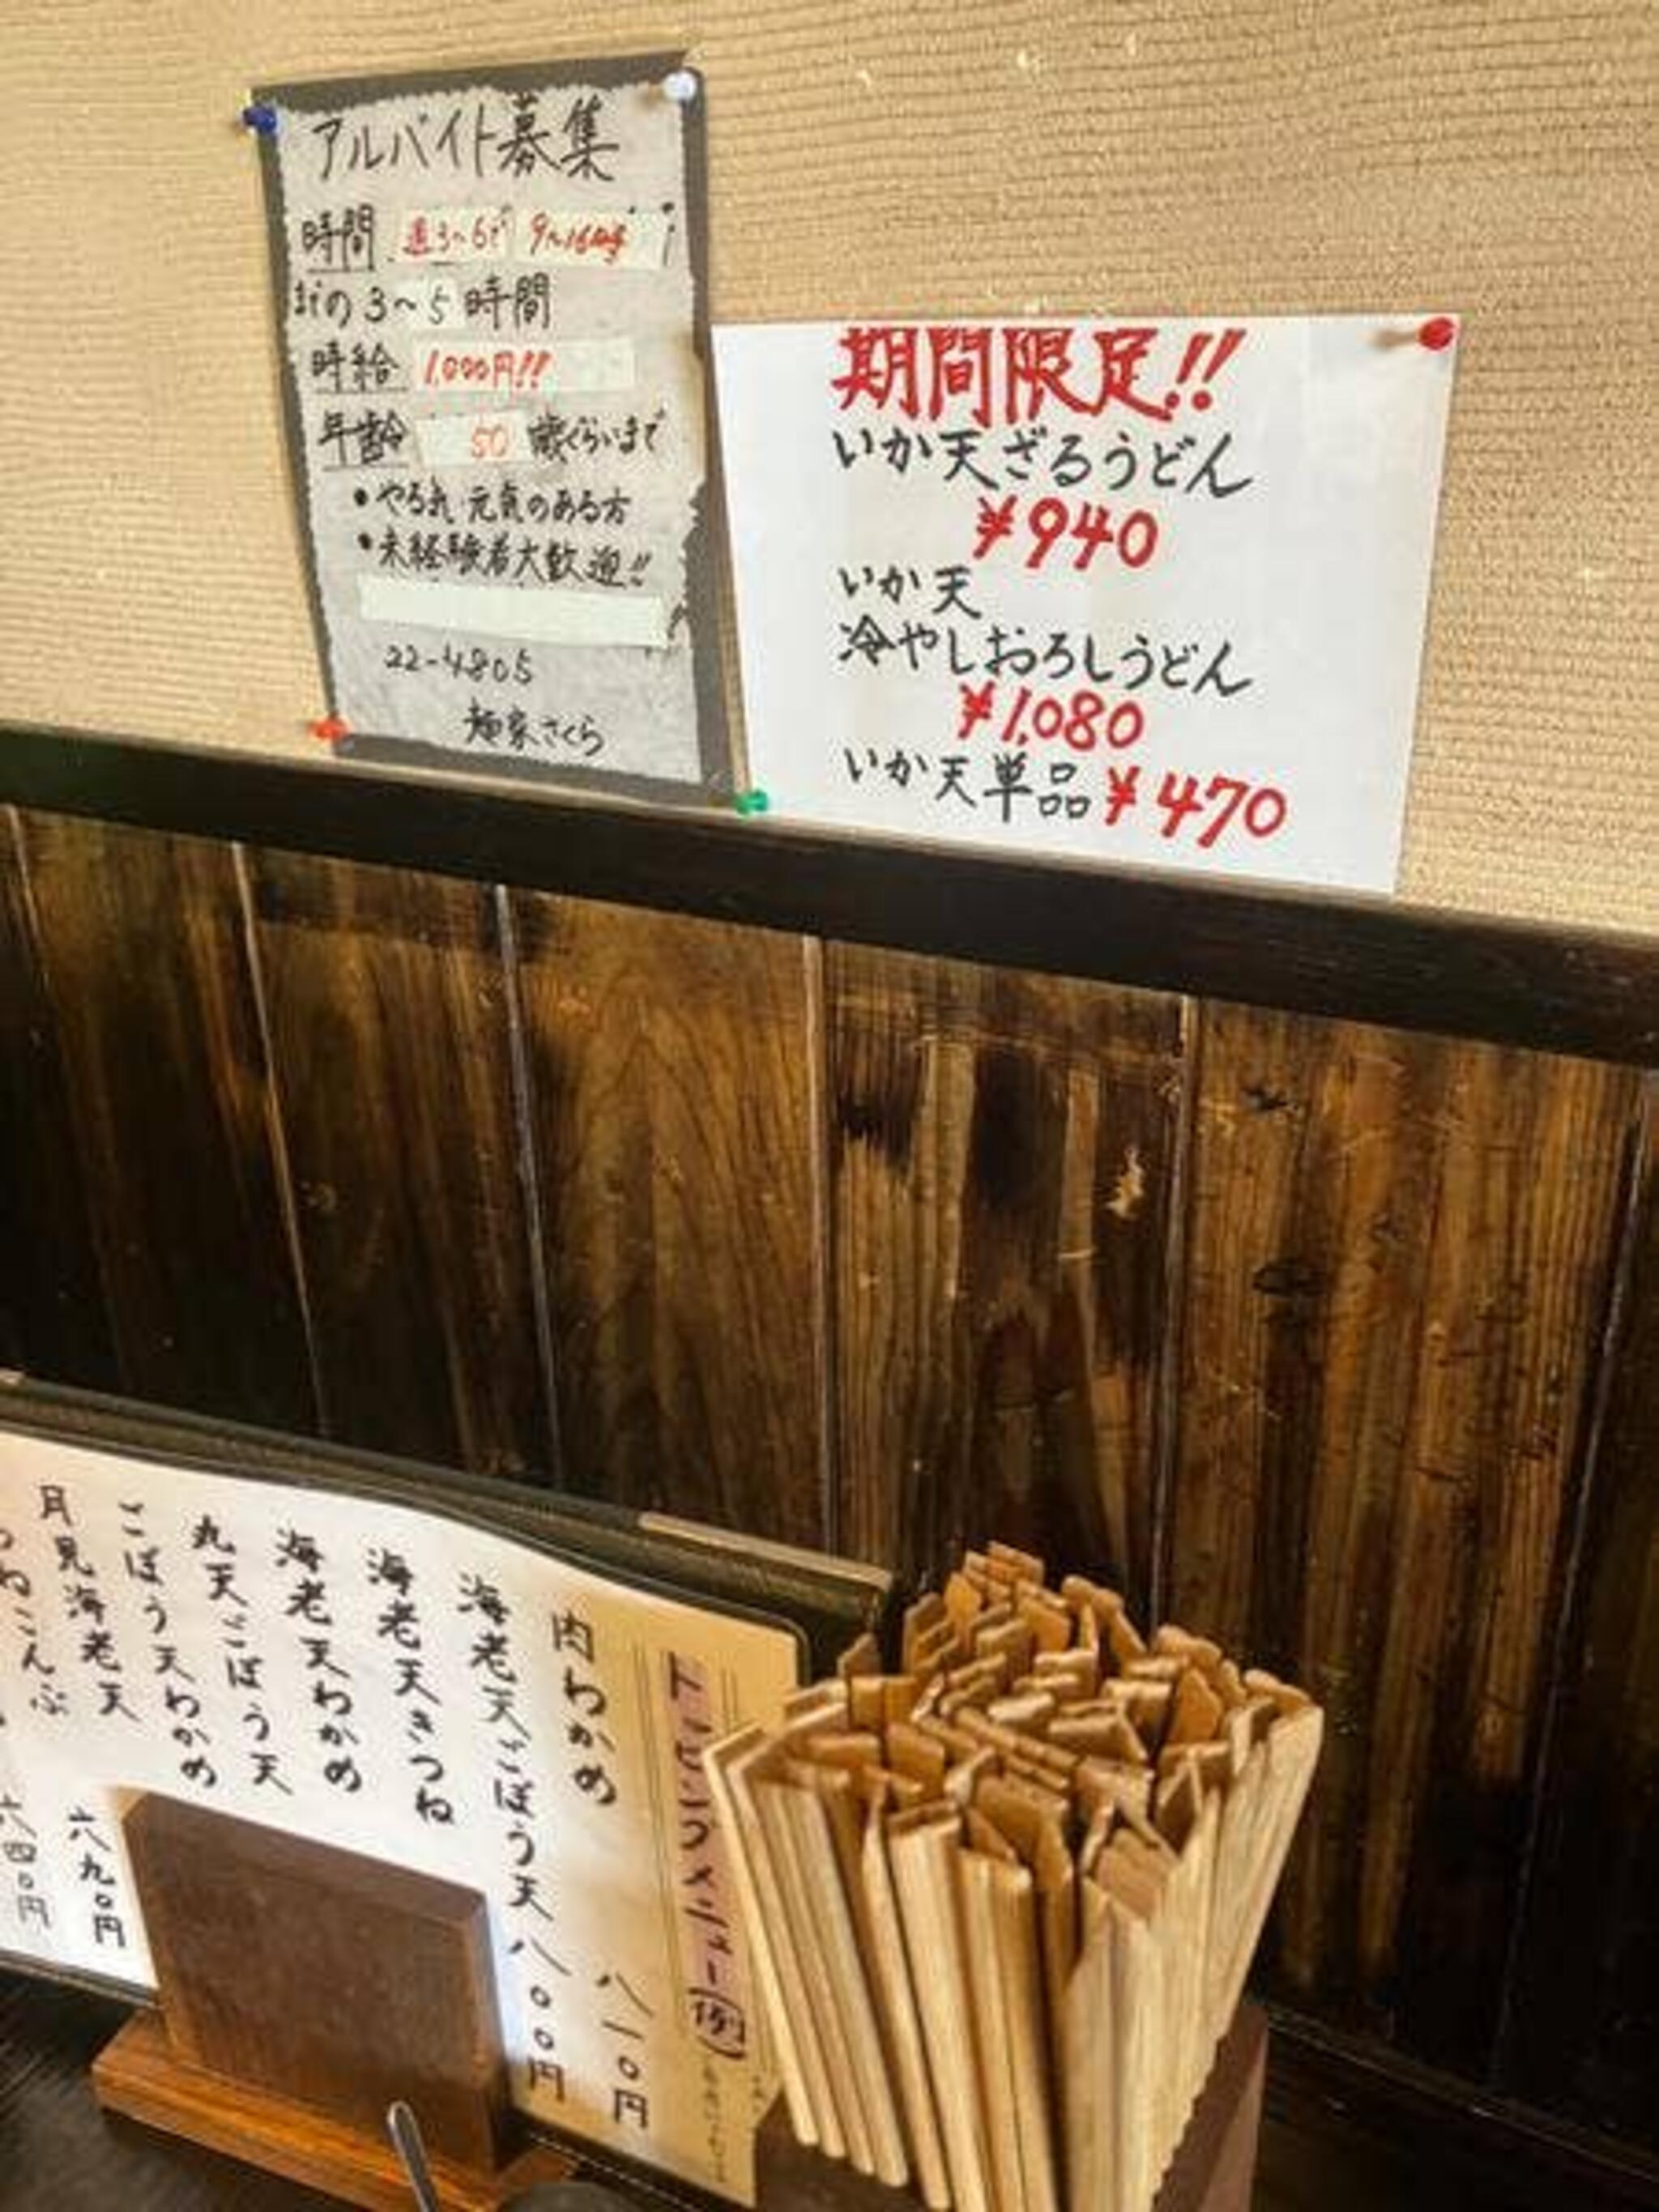 アルバイト募集
時間 週3〜6で 9〜16時
までの3〜5時間
時給 1,000円!!
年齢 50歳ぐらいまで
•やる気 元気のある方
•未経験者大歓迎!!
22-4805
麺家さくら
期間限定!!
いか天ざるうどん
¥940
いか天
冷やしおろしうどん
¥1,080
いか天単品 ¥470
トッピングメニュー(例)
肉わかめ 八一〇円
海老天ごぼう天 八〇〇円
海老天きつね
海老天わかめ
丸天ごぼう天
ごぼう天わかめ
月見海老天 六九〇円
六四〇円